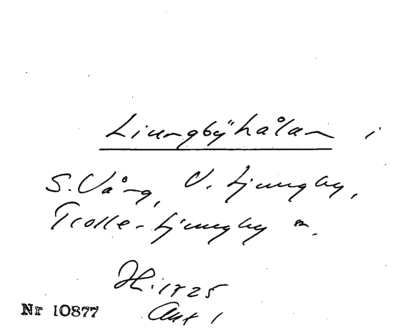 Ljungbyhålan i
S. Vång, V. Ljungby,
Trolle-Ljungby m.
H:1825
Akt 1
Nr 10877